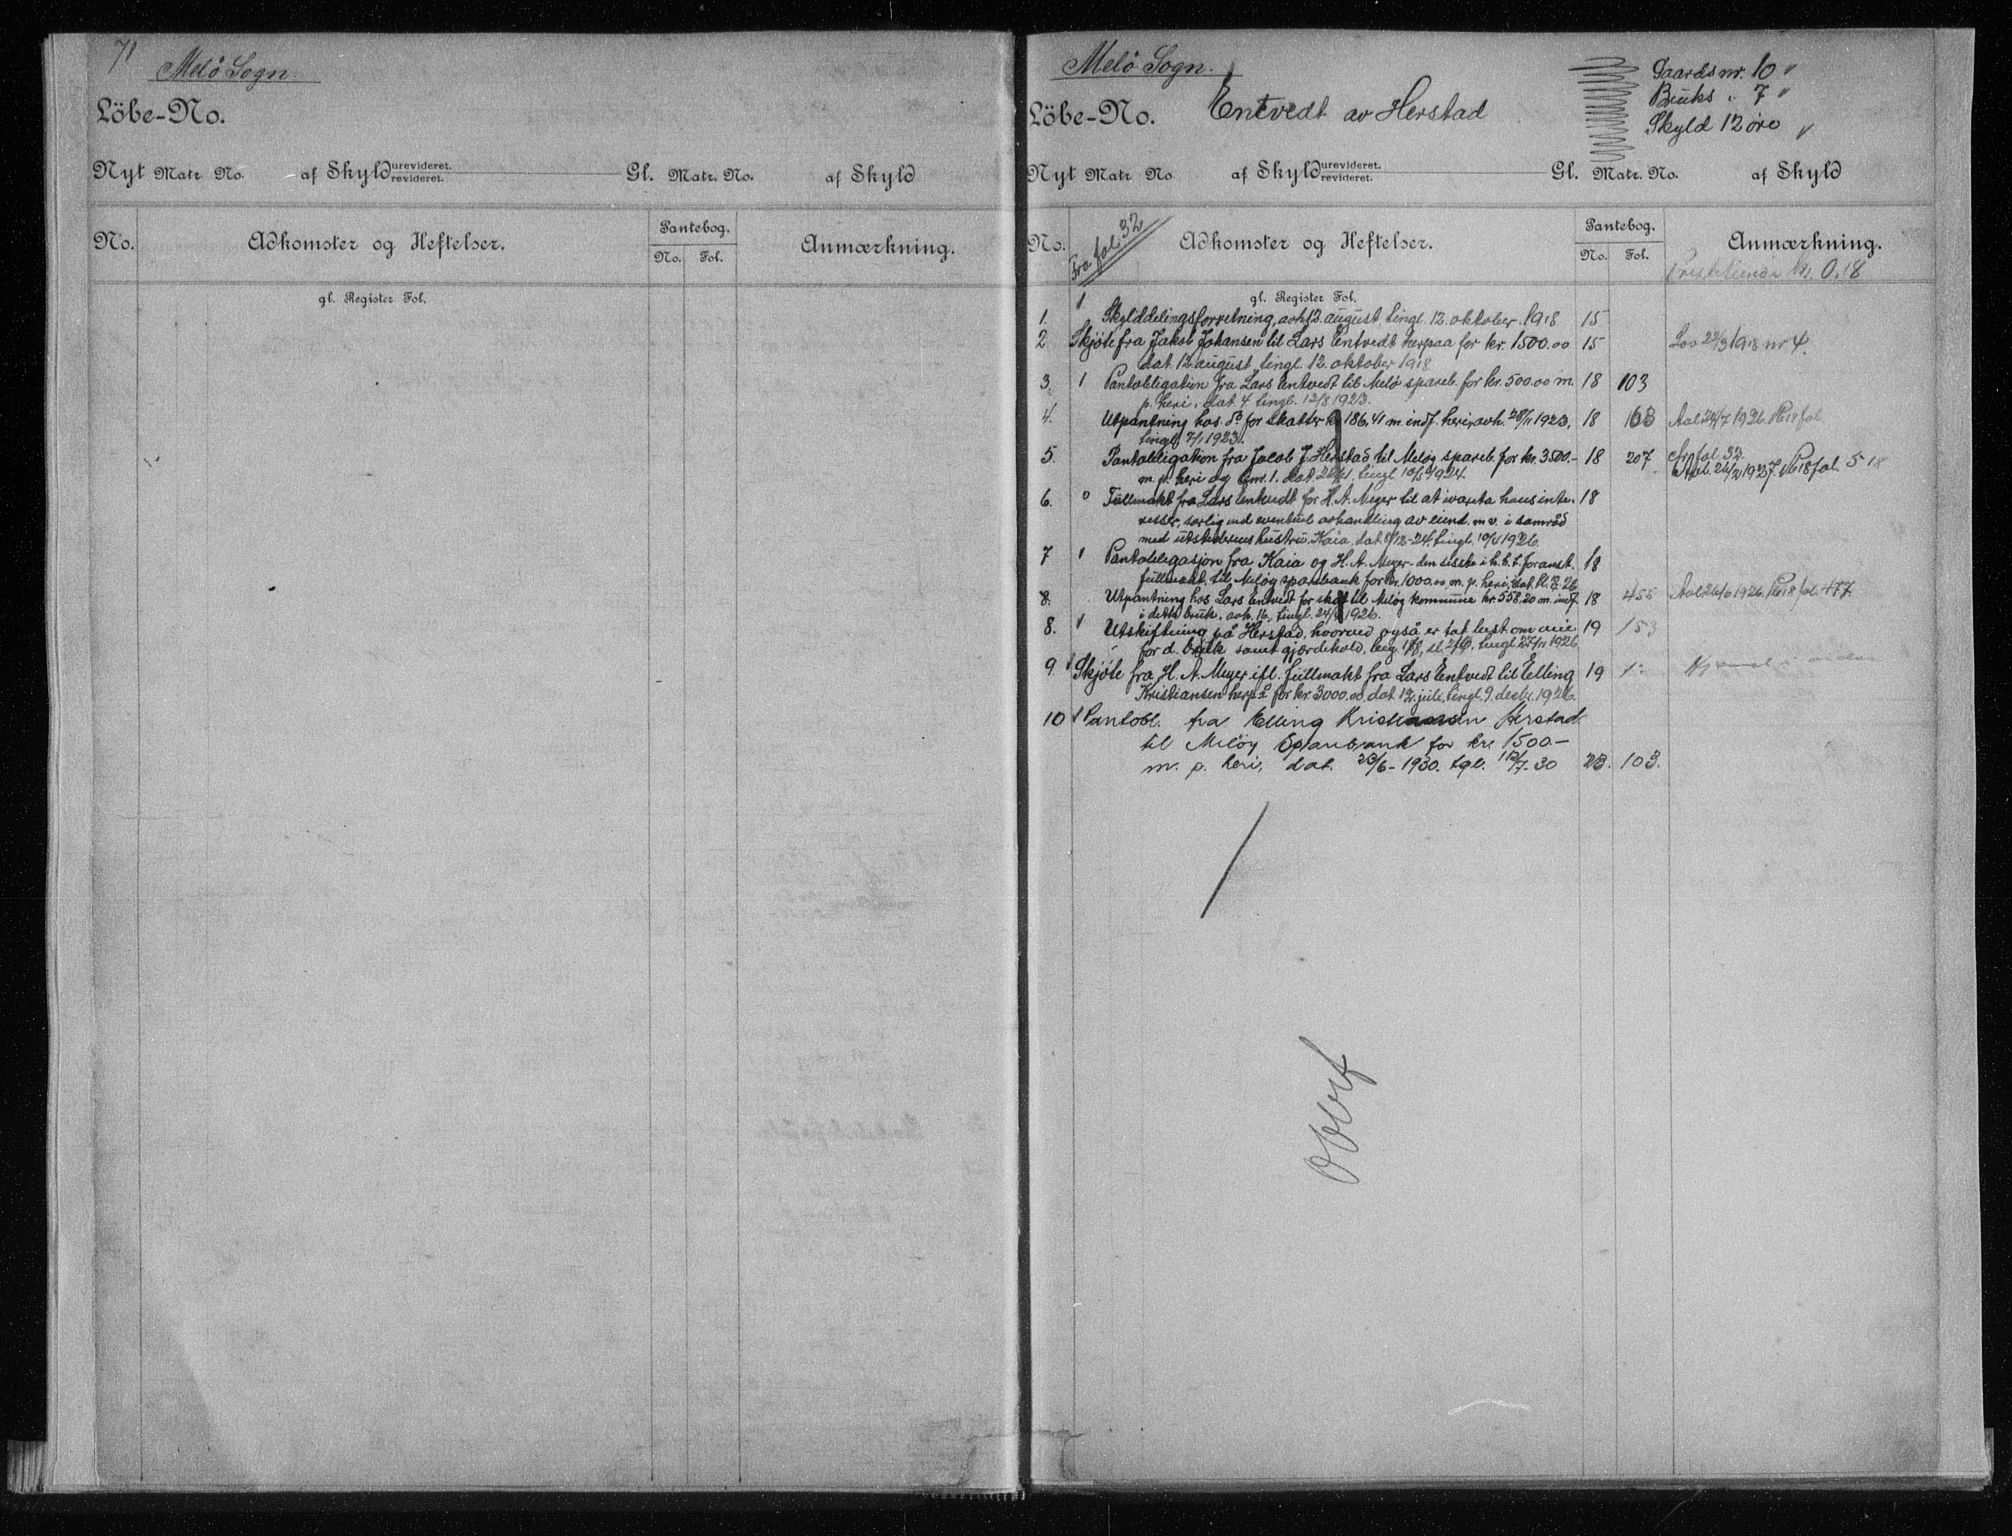 71
Melö Sogn.
Löbe-No.
Nyt Matr. No. af Skyld urevideret. revideret. Gl. Matr. No. af Skyld
No. Adkomster og Heftelser. Pantebog. No. Fol. Anmærkning.
gl. Register Fol.
Melö Sogn.
Gaardsnr. 10 "
Bruks " 7 "
Skyld 12 öre "
Löbe-No. Entvedt av Herstad
Nyt Matr No af Skyld urevideret. revideret. Gl. Matr. No. af Skyld
No. Fra fol. 32 Adkomster og Heftelser. Pantebog. No. Fol. Anmærkning.
kr. 0.18
gl. Register Fol.
1. Skylddelingsforretning, avh. 12. august, tingl. 12. oktober 1918 15
2 Skjöte fra Jakob Johansen til Lars Entvedt herpaa for kr. 1500.00 15 Lov 22/3 1918 nr 4.
dat. 12 august, tingl. 12. oktober 1918
3. Pantobligation fra Lars Entvedt til Melö spareb. for kr. 500.00 m. 18 103
p. heri, dat. 4 tingl. 12/8 1923.
4. Utpantning hos do for skatter kr 186.41 m. indf. heri avh. 28/11 1923, 18 163 Avl 24/7 1926 Pb 18 fol
tingl. 7/1 1923.
5. Pantobligation fra Jacob J. Herstad til Melöy spareb. for kr. 3500.- 18 207 cfr fol. 32.
m. p. heri og bnr. 1. dat. 26/1, tingl 10/5 1924. Avl. 26/2 1927 Pb 18 fol. 518
6. Fullmakt fra Lars Entvedt for H. A. Meyer til at ivareta hans inte- 18
resser, særlig ved eventuel avhandling av eiend. m v. i samråd
med utstederens hustru Kaia, dat. 8/12-24. tingl. 10/5 1926.
7 Pantobligasjon fra Kaia og H. A. Meyer - den siste i h. h. t. foranst. 18
fullmakt, til Melöy sparebank for kr. 1000.00 m. p. heri, dat.
8. Utpantning hos Lars Entvedt for skat til Melöy kommune kr. 558.20 m. indf. 18 455 Avl 26/6 1926. Pb 18 fol. 477
i dette bruk, avh. 16, tingl. 24/ 1926.
8. Utskiftning på Herstad, hvorved også er tat best om veie 19 153
for d. bruk samt gjærdehold, beg. tingl 27/11 1926
9 Skjöte fra H. A. Meyer ifl. fullmakt fra Lars Entvedt til Elling 19
Kristiansen herpå for kr 3000.00 dat. 12. juli, tingl. 9. decbr. 1926.
10 Pantobl. fra Elling Kristiansen Herstad
til Melöy Sparebank for kr. 1500.-
m. p. heri, dat. 23/6 - 1930. tgl. 12/7. 30 23. 103.